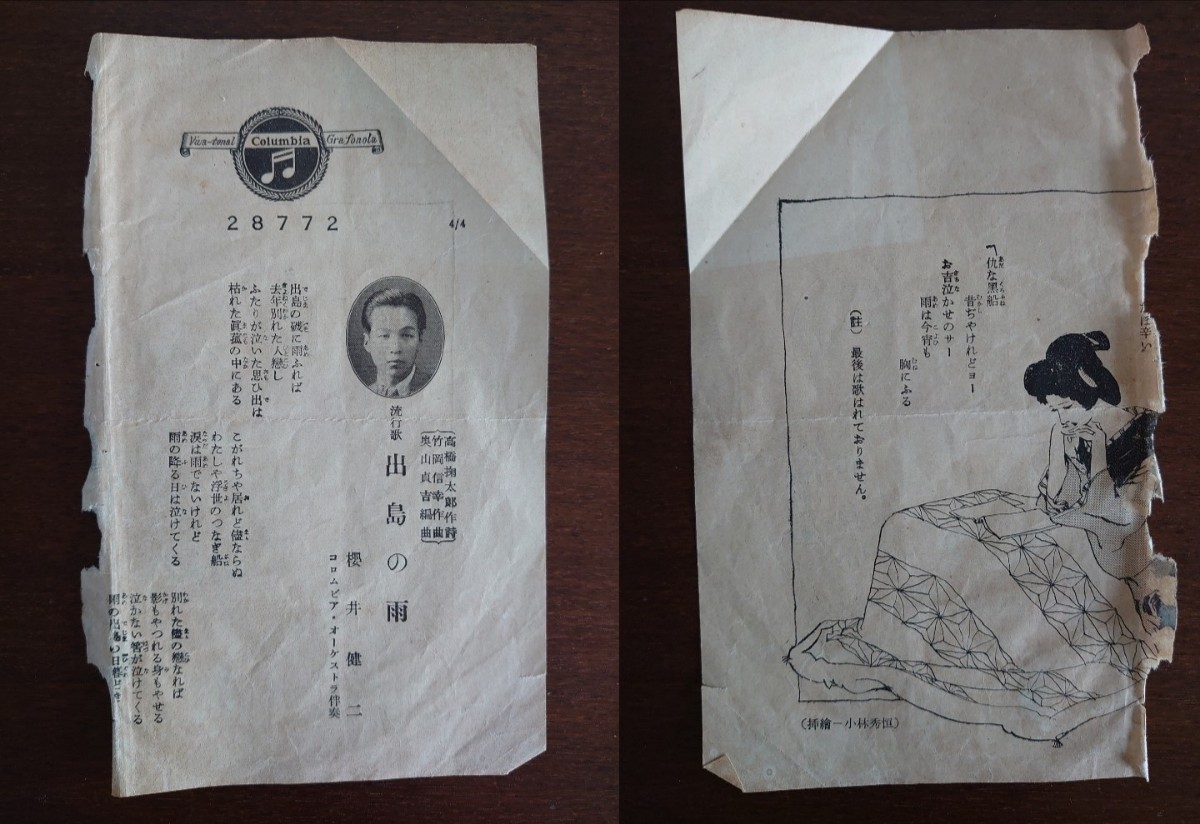 Viva-tonal Columbia Grafonola
28772
4/4
高橋掬太郎作詩
竹岡信幸作曲
奥山貞吉編曲
流行歌 出島の雨
櫻井健二
コロムビア・オーケストラ伴奏
出島の磯に雨ふれば
去年別れた人戀し
ふたりが泣いた思ひ出は
枯れた眞菰の中にある
こがれちや居れど儘ならぬ
わたしや浮世のつなぎ船
涙は雨でないけれど
雨の降る日は泣けてくる
別れた儘の戀なれば
影もやつれる身もやせる
泣かない筈が泣けてくる
雨の出島の日暮どき
仇な黒船
昔ぢやけれどヨー
お吉泣かせのサー
雨は今宵も
胸にふる
(註) 最後は歌はれておりません。
(挿繪ー小林秀恒)